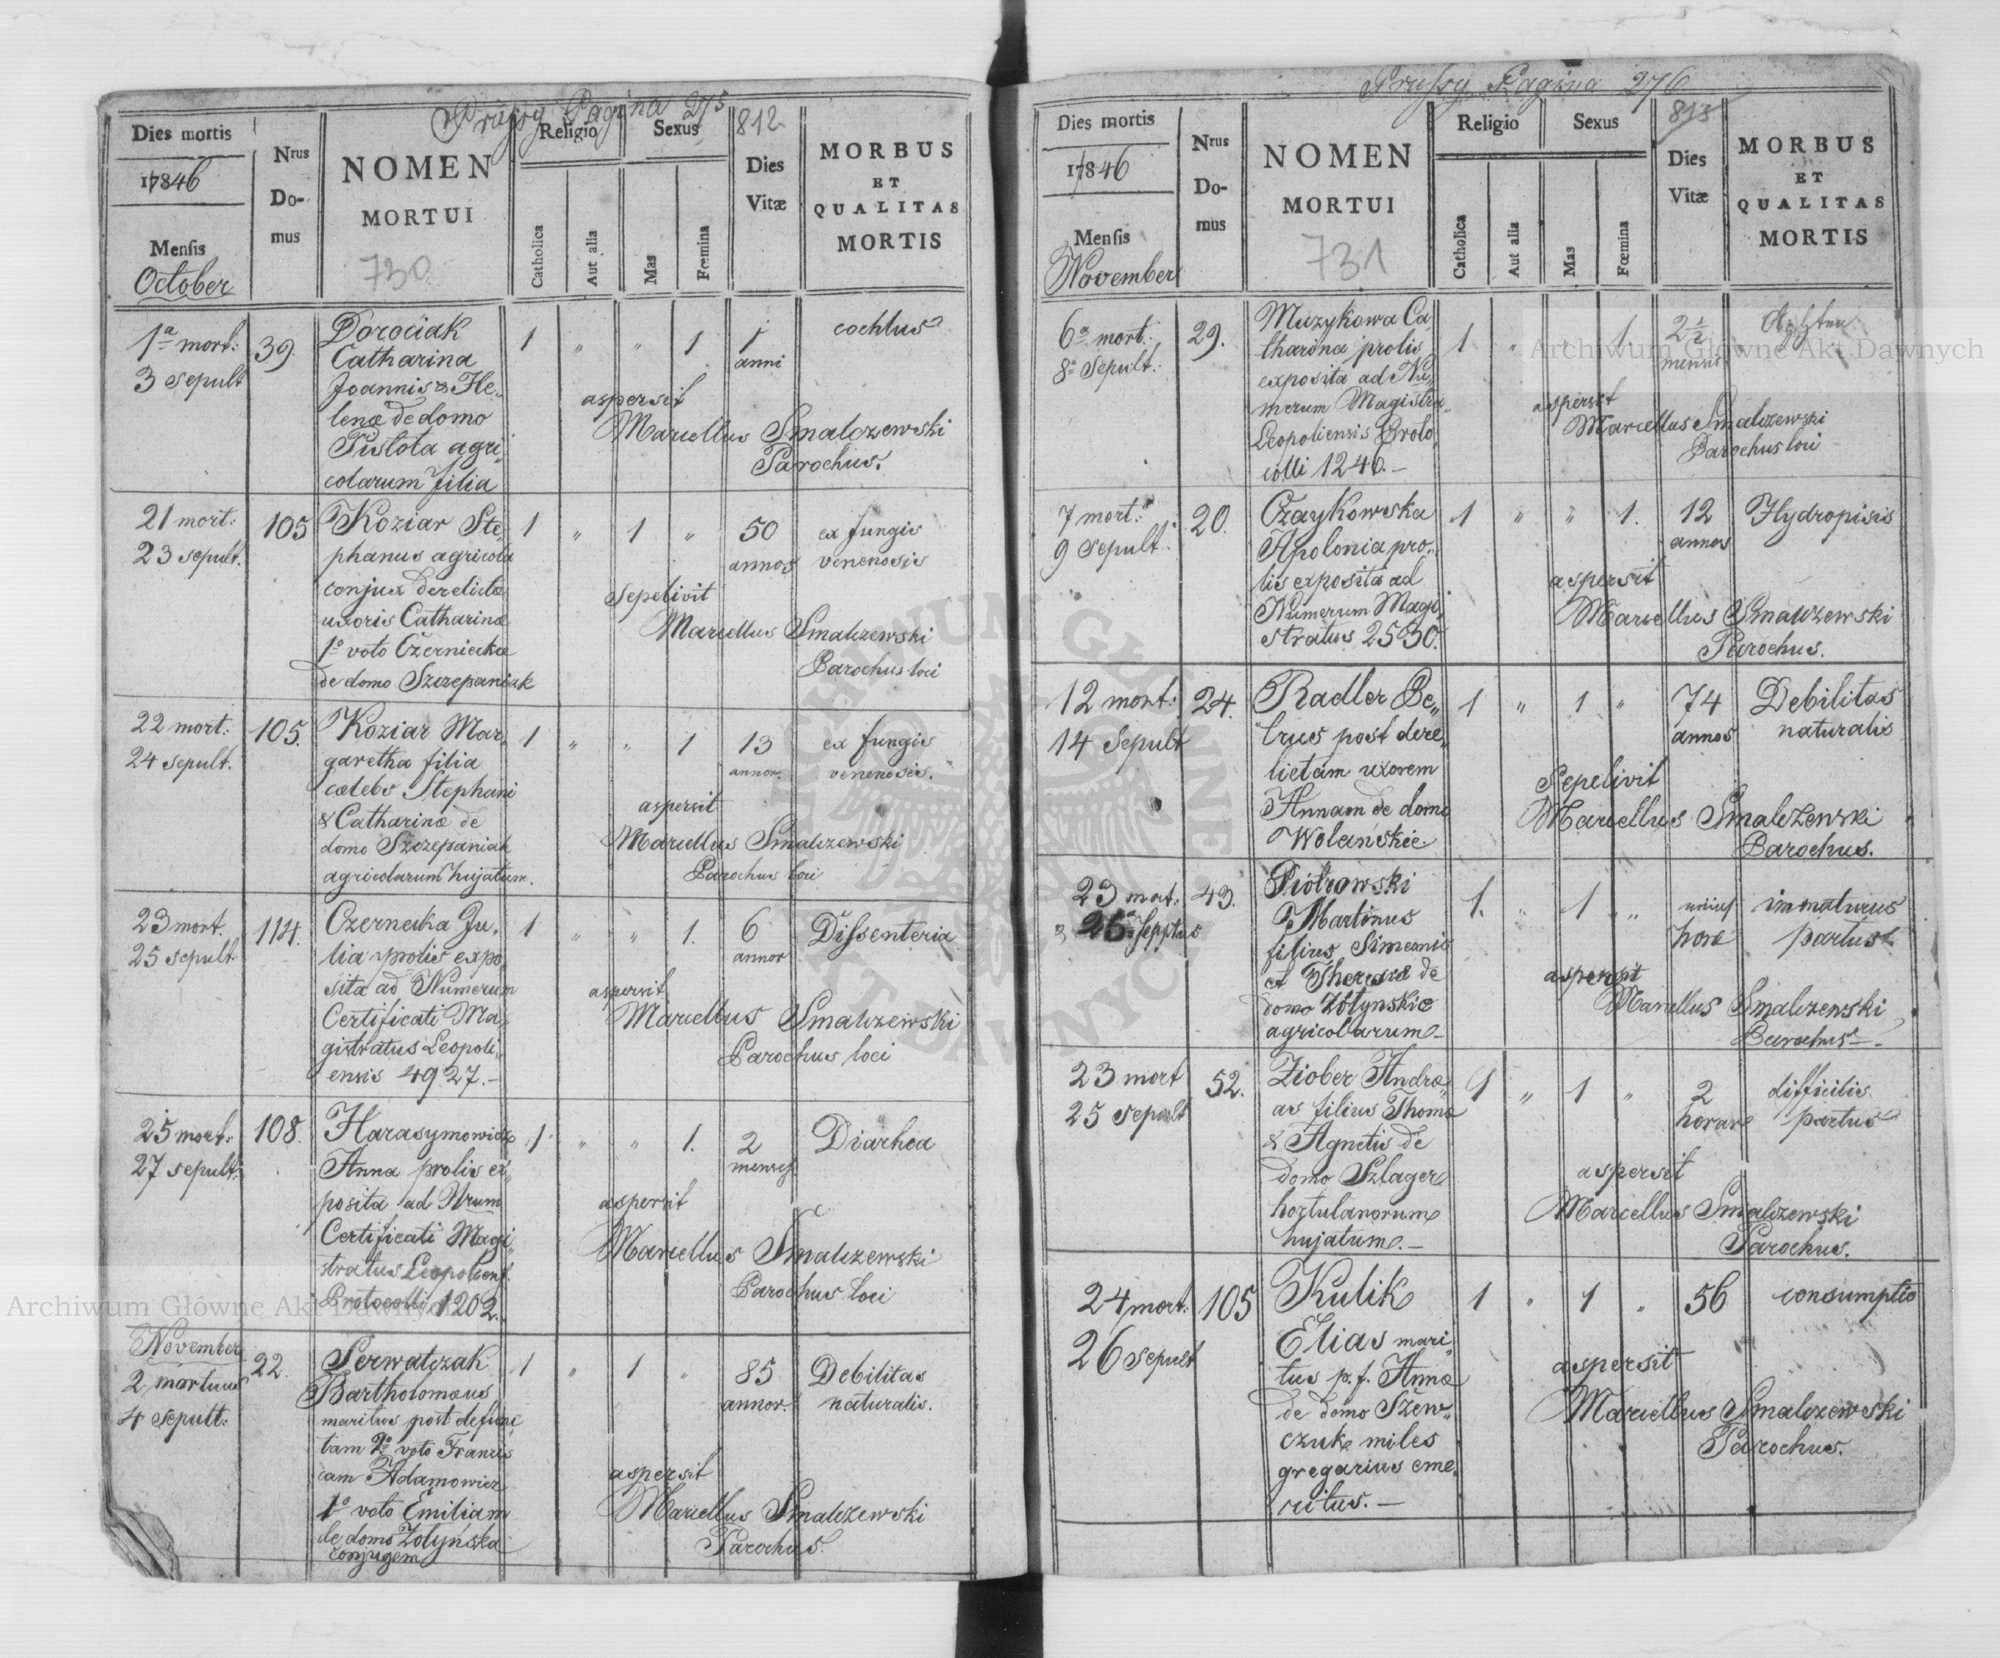 Prussy Pagina 275
812
Dies mortis
17846
Mensis
October
Nrus
Do-
mus
NOMEN
MORTUI
730
Religio
Catholica
Aut alia
Sexus
Mas
Fœmina
Dies
Vitæ
MORBUS
ET
QUALITAS
MORTIS
1a mort:
3 sepult
39.
Dorociak
Catharina
Joannis & He„
lenæ de domo
Pistota agri„
colarum filia
1 „ „ 1
1
anni
cochlus
aspersit
Marcellus Smalczewski
Parochus.
21 mort:
23 sepult.
105
Koziar Ste„
phanus agricola
conjux derelictæ
uxoris Catharinæ
1o voto Czerniecka
de domo Szczepaniak
1 „ 1 „
50
annos
ex fungis
venenosis
Sepelivit
Marcellus Smalczewski
Parochus loci
22 mort:
24 sepult.
105.
Koziar Mar„
garetha filia
cælebs Stephani
& Catharinæ de
domo Szczepaniak
agricolarum hujatum.
1 „ „ 1
13
annor.
ex fungis
venenosis.
aspersit
Marcellus Smalczewski
Parochus loci
23 mort.
25 sepult
114.
Czernecka Ju„
lia prolis expo
sita ad Numerum
Certificati Ma„
gistratus Leopoli„
ensis 4927.–
1 „ „ 1.
6
annor
Dissenteria
aspersit
Marcellus Smalczewski
Parochus loci
25 mort:
27 sepult:
108.
Harasymowicz
Anna prolis ex„
posita ad Nrum
Certificati Magi„
stratus Leopoliens.
Protocolli 1202.
1 „ „ 1.
2
menses.
Diarhea
aspersit
Marcellus Smalczewski
Parochus loci
November
2 mortuus
4 sepult:
22.
Serwatczak
Bartholomæus
maritus post defunc
tam 2o voto Francis
cam Adamowicz
1o voto Emiliam
de domo Zołyńska
conjugem
1 „ 1 „
85
annor.
Debilitas
naturalis.
aspersit
Marcellus Smalczewski
Parochus.
Prussy Pagina 276
813
Dies mortis
17846
Mensis
November
Nrus
Do-
mus
NOMEN
MORTUI
731
Religio
Catholica
Aut alia
Sexus
Mas
Fœmina
Dies
Vitæ
MORBUS
ET
QUALITAS
MORTIS
6a mort.:
8a Sepult:
29.
Muzykowa Ca„
tharina prolis
exposita ad Nu„
merum Magistra„
Leopoliensis Proto
colli 1246.–
1 „ „ 1
2 1/2
menses
aspersit
Marcellus Smalczewski
Parochus loci
7 mort:
9 Sepult.
20.
Czaykowska
Apolonia pro„
lis exposita ad
Numerum Magi„
stratus 2530.
1 „ „ 1.
12
annos
Hydropisis
aspersit
Marcellus Smalczewski
Parochus.
12 mort:
14 Sepult
24.
Radler Pe„
trus post dere„
lictam uxorem
Annam de domo
Wolanskie.
1 „ 1 „
74
annos
Debilitas
naturalis
Sepelivit
Marcellus Smalczewski
Parochus.
23 mort.
49.
Piotrowski
Martinus
filius Simeonis
et Theresiæ de
domo Zołynskie
agricolarum–
1. „ 1 „
unius
horæ
immaturus
partus
aspersit
Marcellus Smalczewski
Parochus–.
23 mort
25 sepult
52.
Ziober Andre„
as filius Thomæ
& Agnetis de
domo Szlager
hortulanorum
hujatum.–
1 „ 1 „
2
horar
difficilis
partus
aspersit
Marcellus Smalczewski
Parochus.
24 mort.
26 sepult
105
Kulik
Elias mari„
tus p. f. Annæ
de domo Szew„
czuk miles
gregarius eme„
ritus.–
1 „ 1 „
56
consumptio
aspersit
Marcellus Smalczewski
Parochus.
Archiwum Główne Akt Dawnych
Archiwum Główne Akt Dawnych
ARCHIWUM GŁÓWNE AKT DAWNYCH